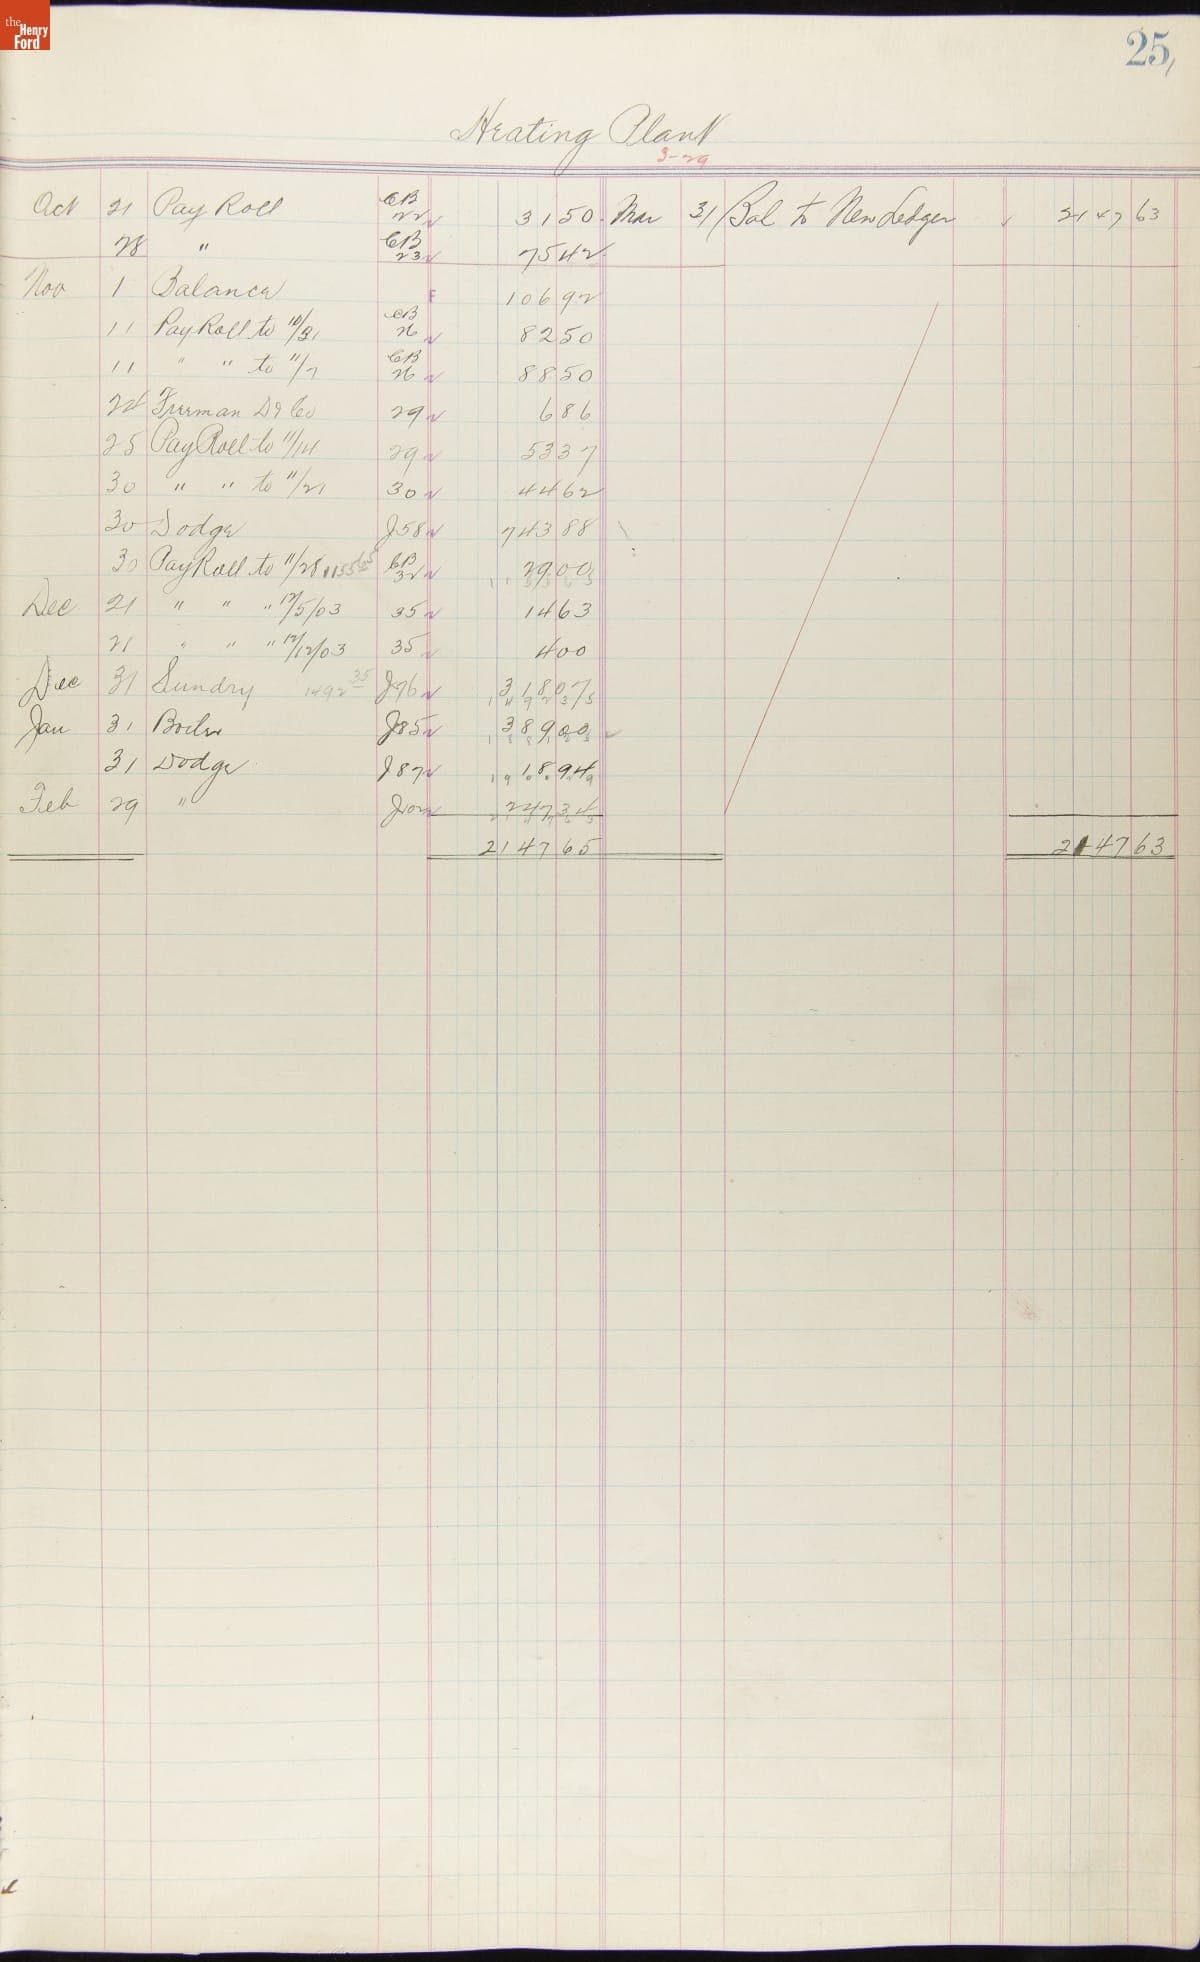 the Henry Ford
25
Heating Plant
3-29
Oct 21 Pay Roll CB 22 31 50 Mar 31 Bal to New Ledger 2147 63
28 " CB 23 75 42
Nov 1 Balance 106 92
11 Pay Roll to 10/31 CB 26 82 50
11 " " to 11/7 CB 26 88 50
24 Co 29 6 86
25 Pay Roll to 11/14 29 53 37
30 " " to 11/21 30 44 62
30 Dodge J58 743 88
30 Pay Roll to 11/28 1155 65 CB 32 29 00
Dec 21 " " " 12/5/03 35 14 63
21 " " " 12/12/03 35 4 00
Dec 31 Sundry 1492 35 J76 318 07
Jan 31 Boiler J85 389 00
31 Dodge J87 18 94
Feb 29 " J102 247 34
2147 65 2147 63